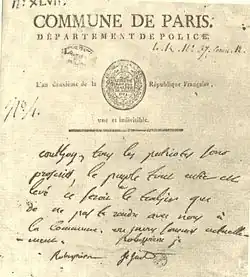 n° XLVII.
COMMUNE DE PARIS.
DÉPARTEMENT DE POLICE,
L'an deuxième de la République Française,
une et indivisible.
couthon, tous les patriotes sont
proscrits, le peuple tout entier est
levé ce seroit le trahir que
de ne pas te rendre avec nous à
la Commune
Robespierre j.
Robespierre